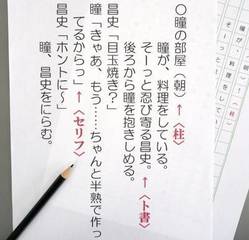 〇瞳の部屋（朝）↑〈柱〉
瞳が、料理をしている。
そーっと忍び寄る昌史。↑〈ト書〉
後ろから瞳を抱きしめる。
昌史「目玉焼き？」
瞳「きゃあ、もう……ちゃんと半熟で作っ
てるからっ」↑〈セリフ〉
昌史「ホントに〜」
瞳、昌史をにらむ。